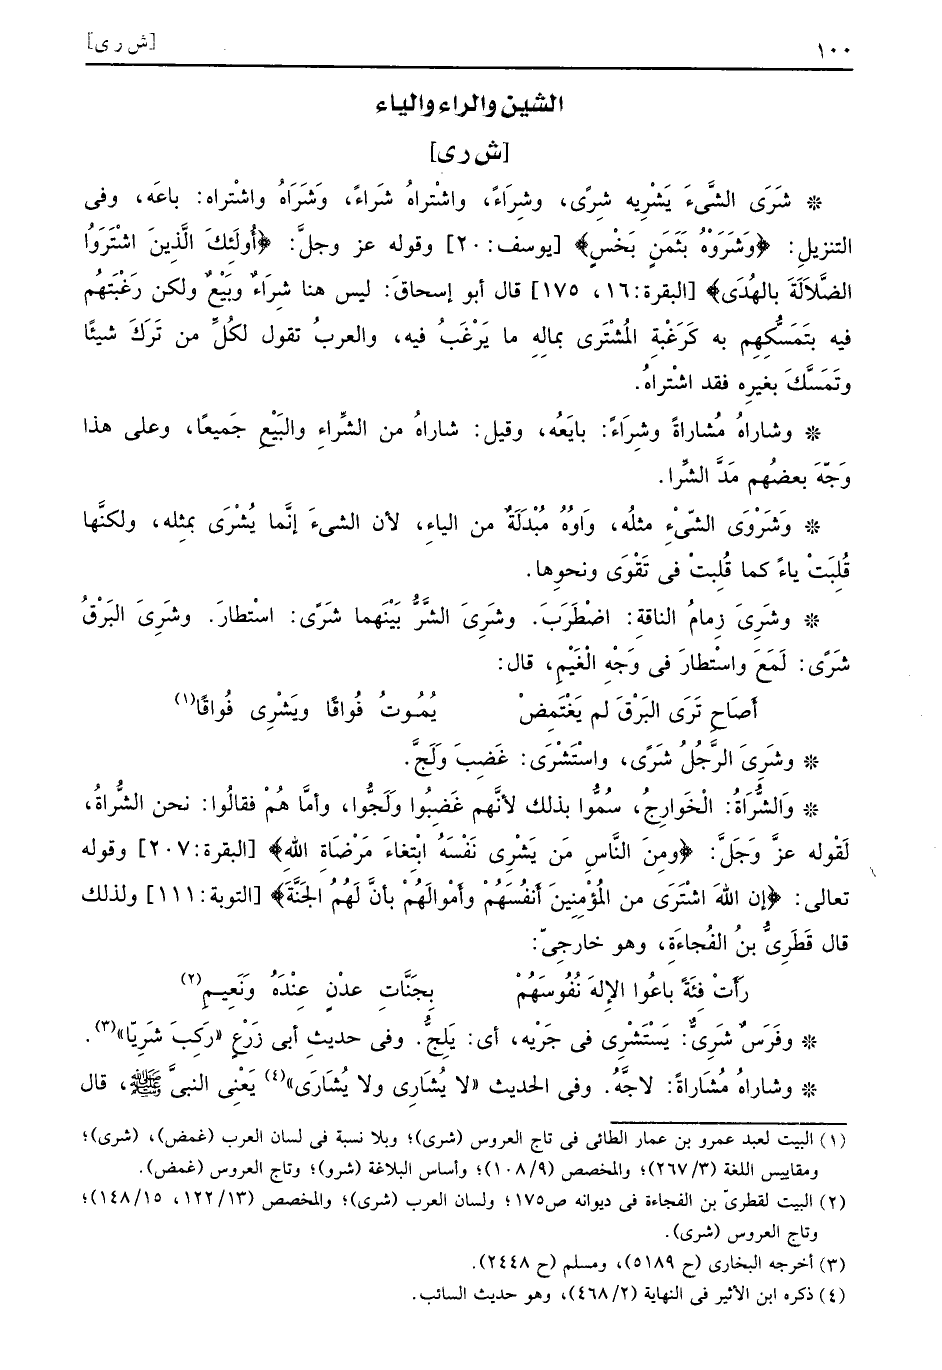 ١٠٠ [ش ر ى]
الشين والراء والياء
[ش ر ى]
* شَرَى الشَّىءَ يَشْرِيه شرًى، وشرَاءً، واشْتراهُ شَراءً، وَشَرَاهُ واشْتراه: باعَه، وفى
التنزيل: ﴿وَشَرَوْهُ بَثَمَنٍ بَخْسٍ﴾ [يوسف: ٢٠] وقوله عز وجلَّ: ﴿أُولَئكَ الَّذينَ اشْتَرَوُا
الضَّلاَلَةَ بالهُدَى﴾ [البقرة:١٦، ١٧٥] قال أبو إسحاقَ: ليس هنا شراءٌ وبَيْعٌ ولكن رغبَتهُم
فيه بتَمَسُّكِهِم به كرَغْبةِ المُشْتَرى بماله ما يَرْغَبُ فيه، والعربُ تقول لكلِّ من تَركَ شيئًا
وتَمَسَّكَ بغيره فقد اشْتراهُ.
* وشاراهُ مُشاراةً وشرَاءً: بايَعُه، وقيل: شاراهُ من الشِّراء والبَيْعِ جَميعًا، وعلى هذا
وَجّهَ بعضُهم مَدَّ الشِّرا.
* وَشَرْوَى الشّىْءِ مثلُه، وَاوُهُ مُبْدَلَةٌ من الياء، لأن الشىءَ إنَّما يُشْرَى بمثله، ولكنَّها
قُلِبَتْ ياءً كما قُلِبتْ فى تَقْوَى ونحوها.
* وشَرىَ زِمامُ الناقة: اضْطَرَبَ. وشَرىَ الشَّرُّ بَيْنَهما شَرًى: استْطارَ. وشَرىَ البَرْقُ
شَرًى: لَمَعَ واسْتطارَ فى وَجْهِ الْغَيْمِ، قال:
أَصَاحِ تَرَى البَرْقَ لم يَغْتَمِضْ يُمُوتُ فُواقًا ويَشْرِى فُواقًا(١)
* وشَرىَ الرَّجُلُ شَرًى، واسْتَشْرَى: غَضبَ وَلَجَّ.
* وَالشُّرَاةُ: الْخَوارِجُ، سُمُّوا بذلك لأنَّهم غَضبُوا وَلَجُّوا، وأمَّا هُمْ فقالُوا: نحن الشُّراةُ،
لقَوله عزَّ وَجَلَّ: ﴿ومِنَ النَّاسِ مَن يَشْرِى نَفْسَهُ ابتغاءَ مَرْضَاةِ الله﴾ [البقرة:٢٠٧] وقوله
تعالى: ﴿إن اللهَ اشْتَرَى من المُؤْمِنينَ أنفُسَهُمْ وأمْوالَهُمْ بأنَّ لَهُمُ الجَنَّةَ﴾ [التوبة:١١١] ولذلك
قال قَطَرِىُّ بنُ الفُجاءَةِ، وهو خارجىّ:
رَأتْ فِئَةً باعُوا الإلهَ نُفُوسَهُمْ بِجَنَّات عدْنٍ عِنْدَهُ وَنَعِيمِ(٢)
* وفَرَسٌ شَرِىٌّ: يَسْتَشْرى فى جَرْيه، أى: يَلِجُّ. وفى حديثِ أبى زَرْعٍ «ركبَ شَرِيّا»(٣).
* وشاراهُ مُشَاراةً: لاجَّهُ. وفى الحديث «لا يُشَارِى ولا يُشَارَى»(٤) يَعْنِى النبىَّ ﷺ، قال
(١) البيت لعبد عمرو بن عمار الطائى فى تاج العروس (شرى)؛ وبلا نسبة فى لسان العرب (غمض)، (شرى)؛
ومقاييس اللغة (٢٦٧/٣)؛ والمخصص (١٠٨/٩)؛ وأساس البلاغة (شرو)؛ وتاج العروس (غمض).
(٢) البيت لقطرىّ بن الفجاءة فى ديوانه ص١٧٥؛ ولسان العرب (شرى)؛ والمخصص (١٢٢/١٣، ١٤٨/١٥)؛
وتاج العروس (شرى).
(٣) أخرجه البخارى (ح ٥١٨٩)، ومسلم (ح ٢٤٤٨).
(٤) ذكره ابن الأثير فى النهاية (٤٦٨/٢)، وهو حديث السائب.